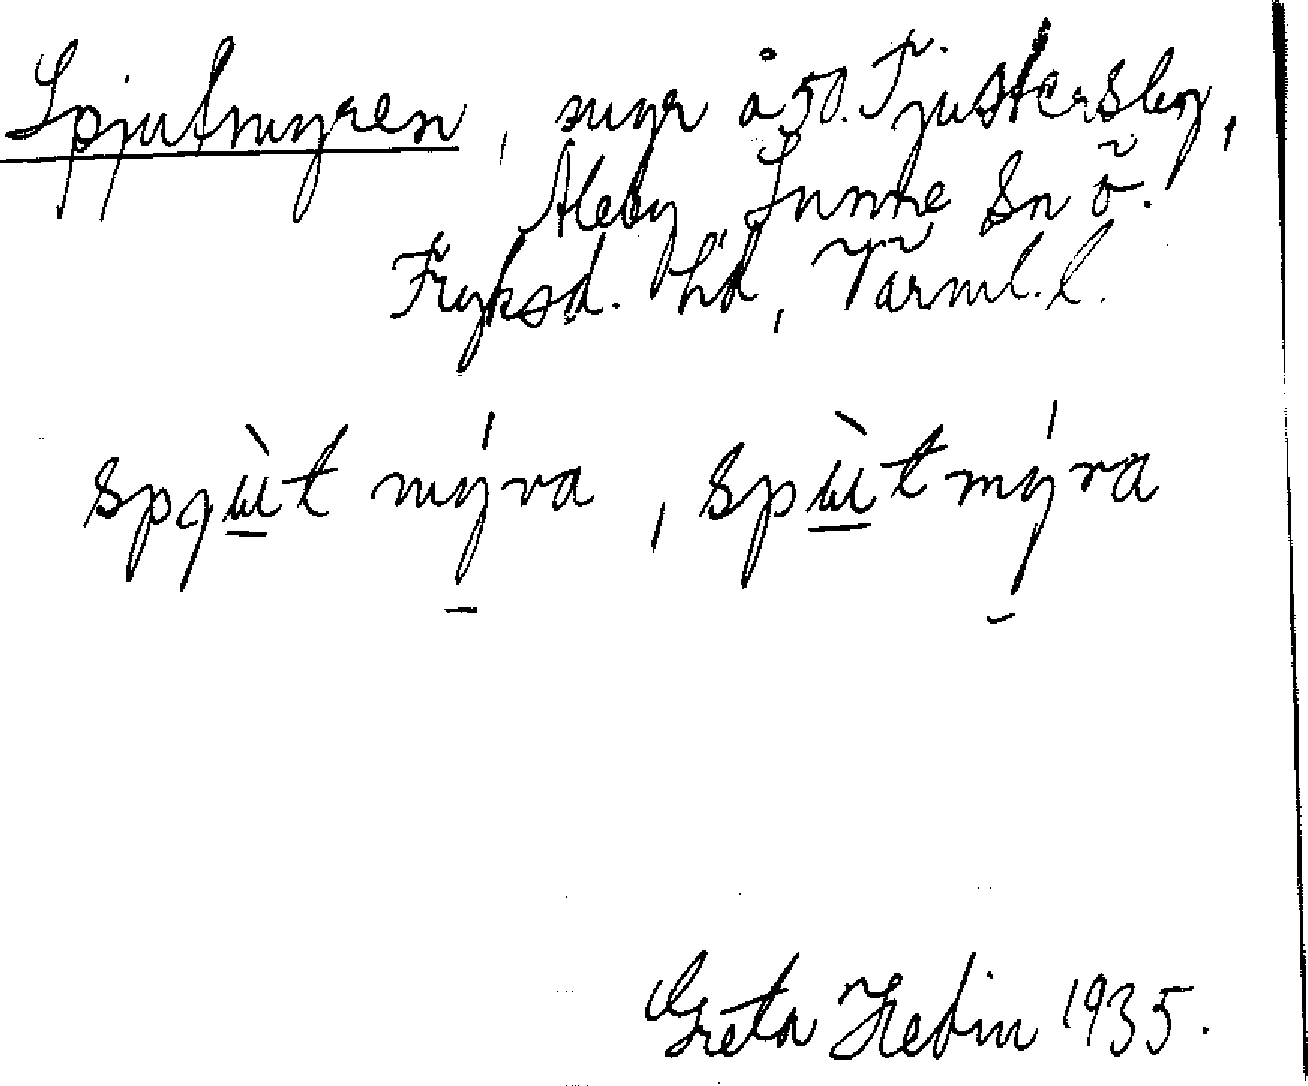 Spjutmyren, myr å 50. Tjustersby,
Åleby Sunne Sn ö.
Fryksd. hd, Värml. l.
spjùt mýra, spùtmýra
Greta Hedin 1935.